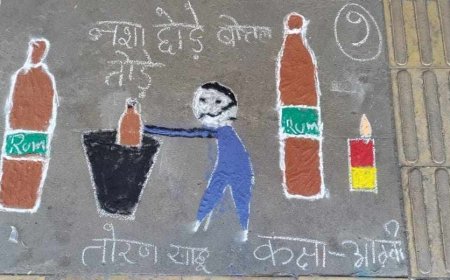 नशा छोड़े बोतल
तोड़े
9
Rum
Rum
तोरण साहू कक्षा-आठवीं